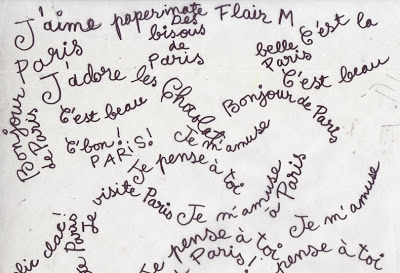 J'aime papermate Flair M
Des
bisous
de
Paris
C'est la
belle
Paris
Bonjour
Paris
J'adore les
C'est beau
C'est beau
Bonjour de Paris
Bonjour
de Paris
C'bon!
PARIS!
Je m'amuse
Je pense à toi
visite Paris
Je m'amuse
à Paris
Je m'amuse
clac!
de Paris
Je
Je pense à toi
Paris!
pense à toi